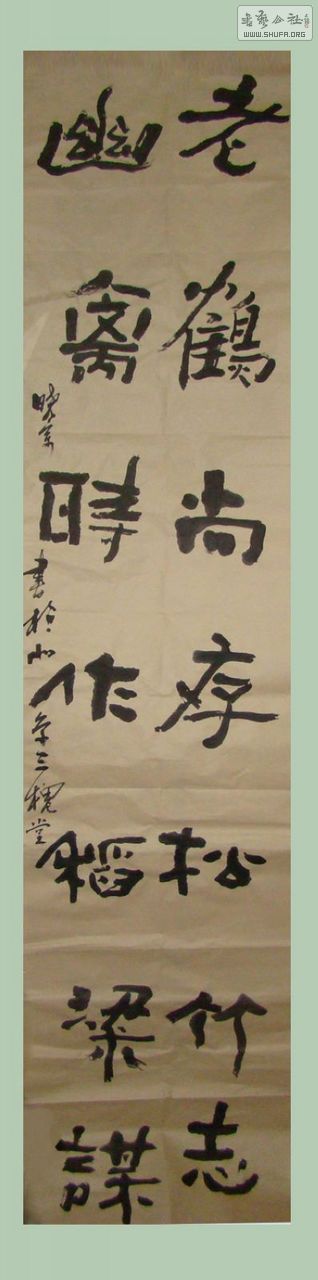 書藝公社
WWW.SHUFA.ORG
老鶴尚存松竹志
幽禽時作稻粱謀
書於北京三槐堂